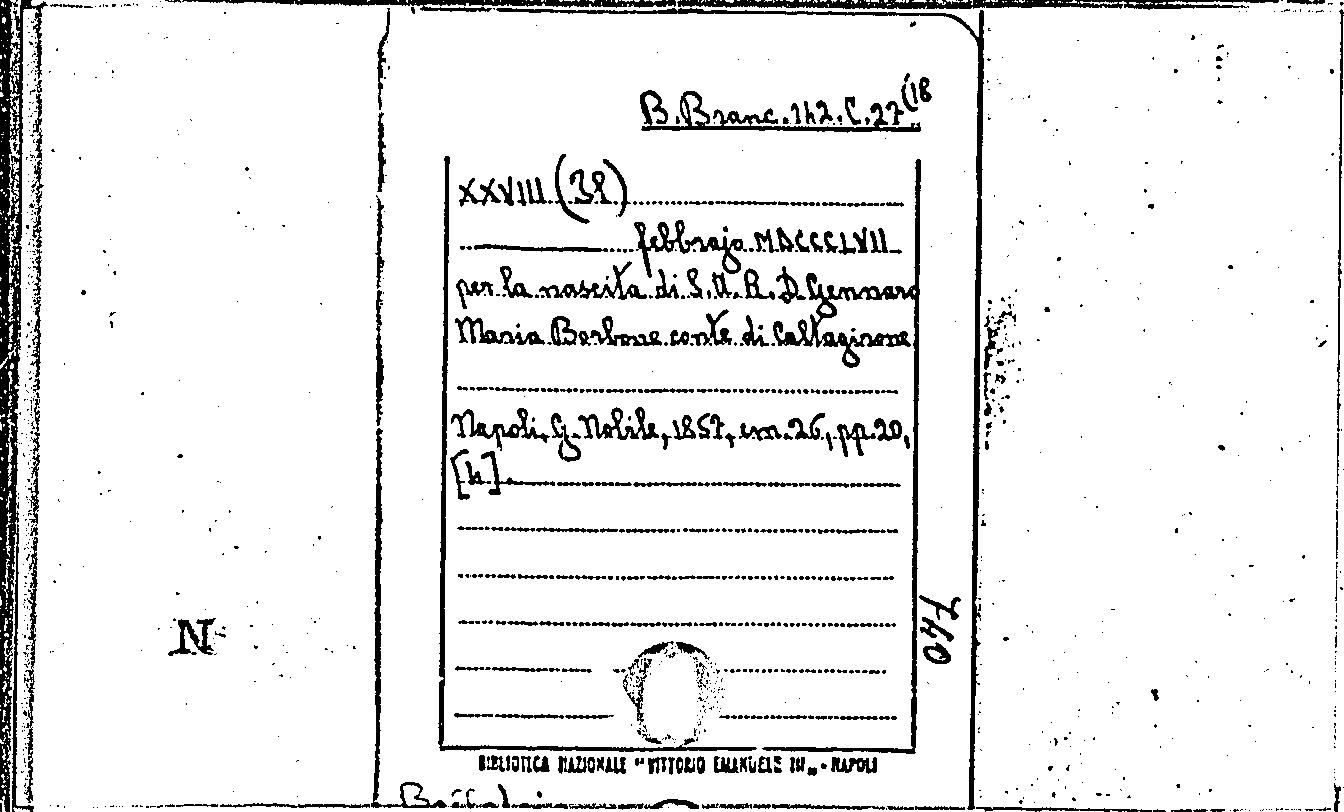 B. Branc. 142. C. 27 (18
XXVIII (38)
febbrajo MDCCCLVII
per la nascita di S. A. R. D. Gennaro
Maria Borbone conte di Caltagirone
Napoli, G. Nobile, 1857, cm. 26, pp. 20,
[4].
740
N
BIBLIOTECA NAZIONALE "VITTORIO EMANUELE III" - NAPOLI